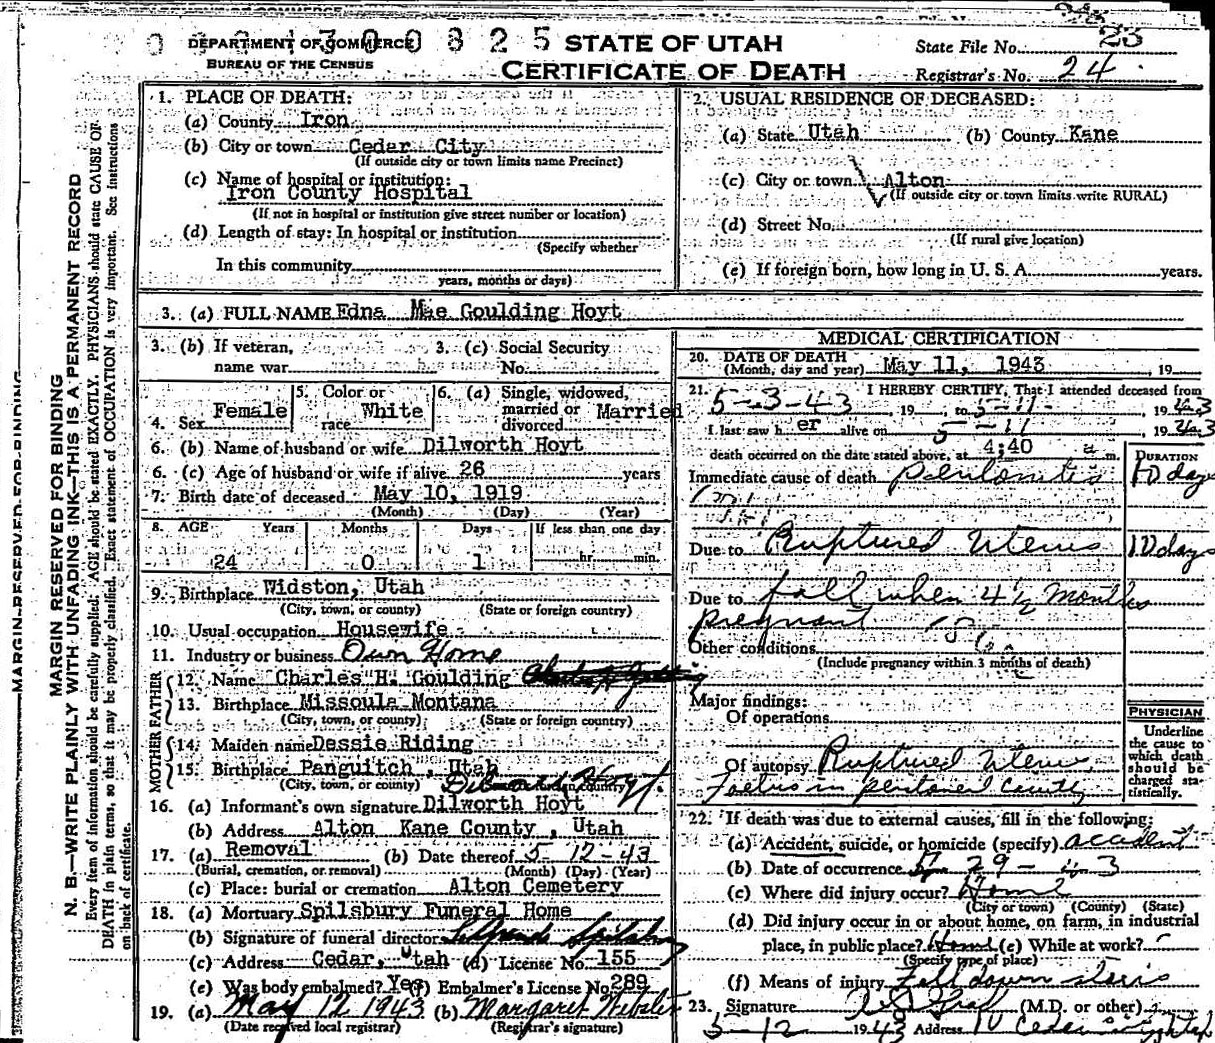 DEPARTMENT OF COMMERCE
BUREAU OF THE CENSUS
0 0 8 2 5
STATE OF UTAH
CERTIFICATE OF DEATH
State File No. 23
Registrar's No. 24
MARGIN RESERVED FOR BINDING
N. B.—WRITE PLAINLY WITH UNFADING INK—THIS IS A PERMANENT RECORD
Every item of information should be carefully supplied; AGE should be stated EXACTLY. PHYSICIANS should state CAUSE OF
DEATH in plain terms, so that it may be properly classified. Exact statement of OCCUPATION is very important. See instructions
on back of certificate.
1. PLACE OF DEATH:
(a) County Iron
(b) City or town Cedar City
(If outside city or town limits name Precinct)
(c) Name of hospital or institution:
Iron County Hospital
(If not in hospital or institution give street number or location)
(d) Length of stay: In hospital or institution
(Specify whether
In this community
years, months or days)
2. USUAL RESIDENCE OF DECEASED:
(a) State Utah (b) County Kane
(c) City or town Alton
(If outside city or town limits write RURAL)
(d) Street No.
(If rural give location)
(e) If foreign born, how long in U. S. A. years.
3. (a) FULL NAME Edna Mae Goulding Hoyt
3. (b) If veteran,
name war
3. (c) Social Security
No.
4. Sex Female
5. Color or
race White
6. (a) Single, widowed,
married or
divorced Married
6. (b) Name of husband or wife Dilworth Hoyt
6. (c) Age of husband or wife if alive 26 years
7. Birth date of deceased May 10, 1919
(Month) (Day) (Year)
8. AGE Years Months Days If less than one day
24 0 1 hr. min.
9. Birthplace Widston, Utah
(City, town, or county) (State or foreign country)
10. Usual occupation Housewife
11. Industry or business Own Home
FATHER
12. Name Charles H. Goulding
13. Birthplace Missoula Montana
(City, town, or county) (State or foreign country)
MOTHER
14. Maiden name Dessie Riding
15. Birthplace Panguitch, Utah
(City, town, or county)
Dilworth Hoyt
16. (a) Informant's own signature Dilworth Hoyt
(b) Address Alton Kane County, Utah
17. (a) Removal (b) Date thereof 5-12-43
(Burial, cremation, or removal) (Month) (Day) (Year)
(c) Place: burial or cremation Alton Cemetery
18. (a) Mortuary Spilsbury Funeral Home
(b) Signature of funeral director Spilsbury
(c) Address Cedar, Utah (d) License No. 155
(e) Was body embalmed? Yes (f) Embalmer's License No. 289
19. (a) May 12 1943 (b) Margaret Webster
(Date received local registrar) (Registrar's signature)
MEDICAL CERTIFICATION
20. DATE OF DEATH
(Month, day and year) May 11, 1943, 19
21. I HEREBY CERTIFY, That I attended deceased from
5-3-43, 19, to 5-11-, 1943
I last saw her alive on 5-11, 1943
death occurred on the date stated above, at 4:40 a m.
DURATION
Immediate cause of death peritonitis 10 days
Due to Ruptured Uterus 10 days
Due to fall when 4½ months
pregnant
Other conditions
(Include pregnancy within 3 months of death)
Major findings:
Of operations
Of autopsy Ruptured Uterus,
Foetus in peritoneal cavity
PHYSICIAN
Underline
the cause to
which death
should be
charged sta-
tistically.
22. If death was due to external causes, fill in the following:
(a) Accident, suicide, or homicide (specify) accident
(b) Date of occurrence 29-43
(c) Where did injury occur? Home
(City or town) (County) (State)
(d) Did injury occur in or about home, on farm, in industrial
place, in public place? Home (e) While at work?
(Specify type of place)
(f) Means of injury Fell down steris
23. Signature (M.D. or other)
5-12 1943 Address Cedar